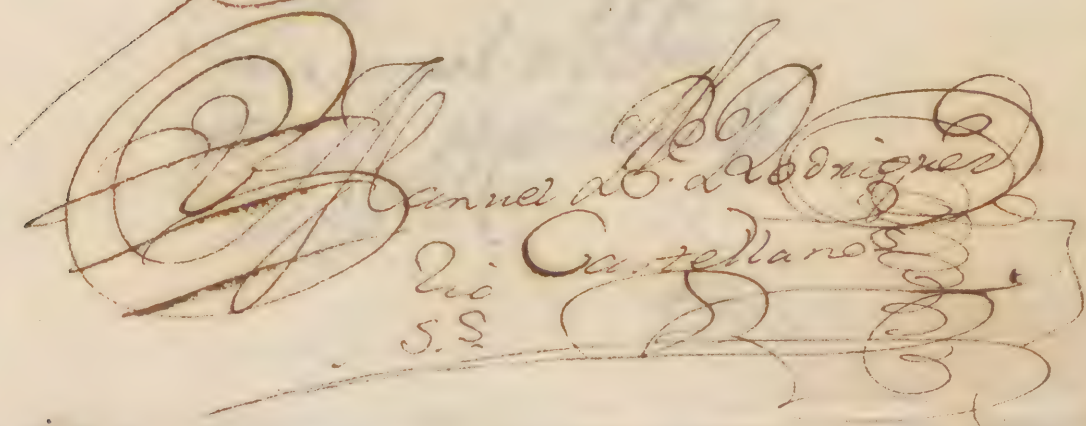 Manuel Rodriguez
Castellanos
S.S.